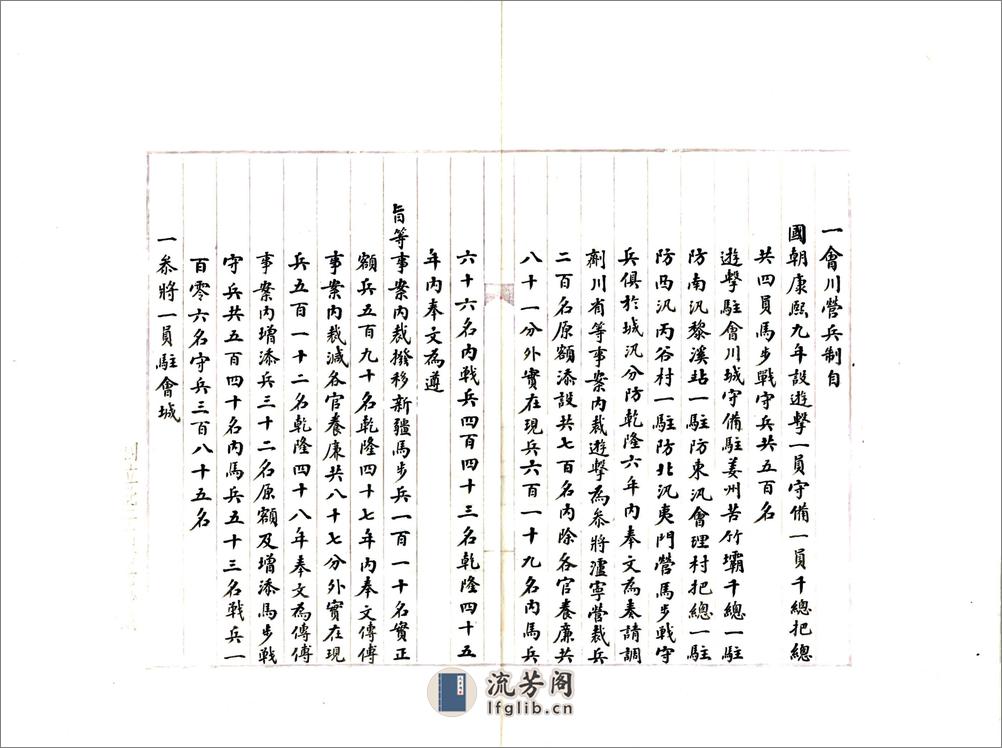 一會川營兵制自
國朝康熙九年設遊擊一員守備一員千總把總
共四員馬步戰守兵共五百名
遊擊駐會川城守備駐姜州苦竹壩千總一駐
防南汛黎溪站一駐防東汛會理村把總一駐
防西汛丙谷村一駐防北汛夷門營馬步戰守
兵俱於城汛分防乾隆六年內奉文為奏請調
劑川省等事案內裁遊擊為參將瀘寧營裁兵
二百名原額添設共七百名內除各官養廉共
八十一分外實在現兵六百一十九名內馬兵
六十六名內戰兵四百四十三名乾隆四十五
年內奉文為遵
旨等事案內裁撥移新疆馬步兵一百一十名實正
額兵五百九十名乾隆四十七年內奉文傳傳
事案內裁減各官養廉共八十七分外實在現
兵五百一十二名乾隆四十八年奉文為傳傳
事案內增添兵三十二名原額及增添馬步戰
守兵共五百四十名內馬兵五十三名戰兵一
百零六名守兵三百八十五名
一參將一員駐會城
流芳阁
lfglib.cn